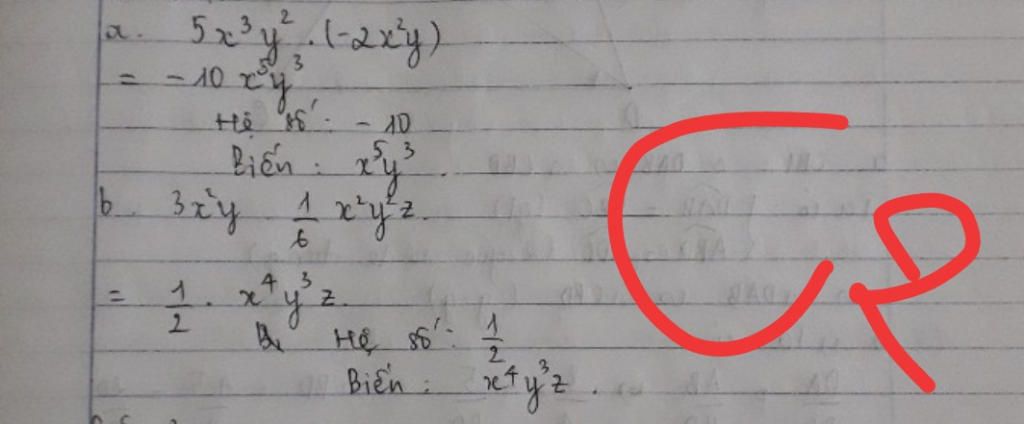 a. 5x³y² . (-2x²y)
= -10 x⁵y³
Hệ số : - 10
Biến : x⁵y³.
b. 3x²y 1/6 x²y²z.
= 1/2 . x⁴y³z.
Hệ số : 1/2
Biến : x⁴y³z.